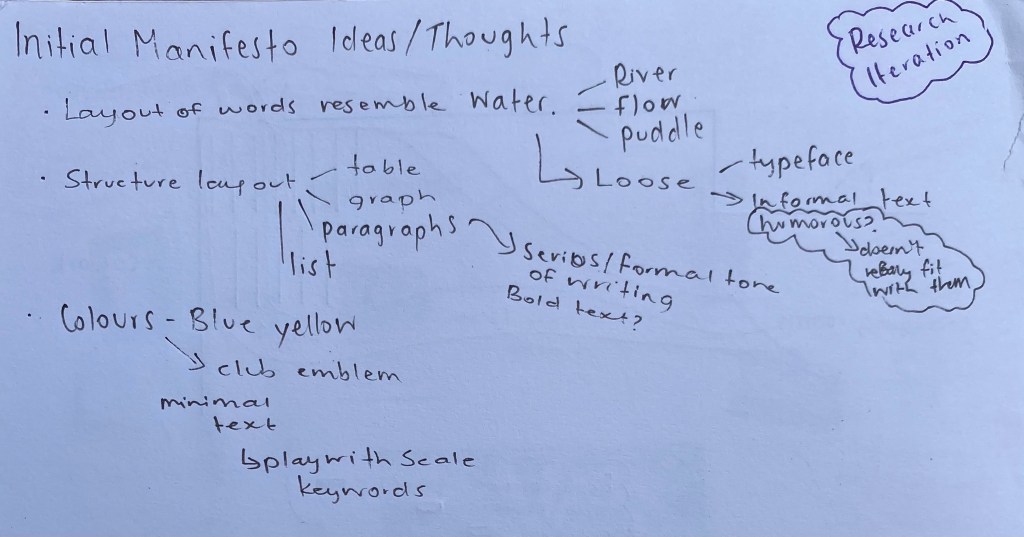 Initial Manifesto Ideas/Thoughts
Research
Iteration
· Layout of words resemble water.
River
flow
puddle
Loose
typeface
Informal text
humorous?
doesn't
really fit
with them
· Structure layout
table
graph
paragraphs
list
Serios/formal tone
of writing
Bold text?
· Colours - Blue yellow
club emblem
minimal
text
play with Scale
keywords